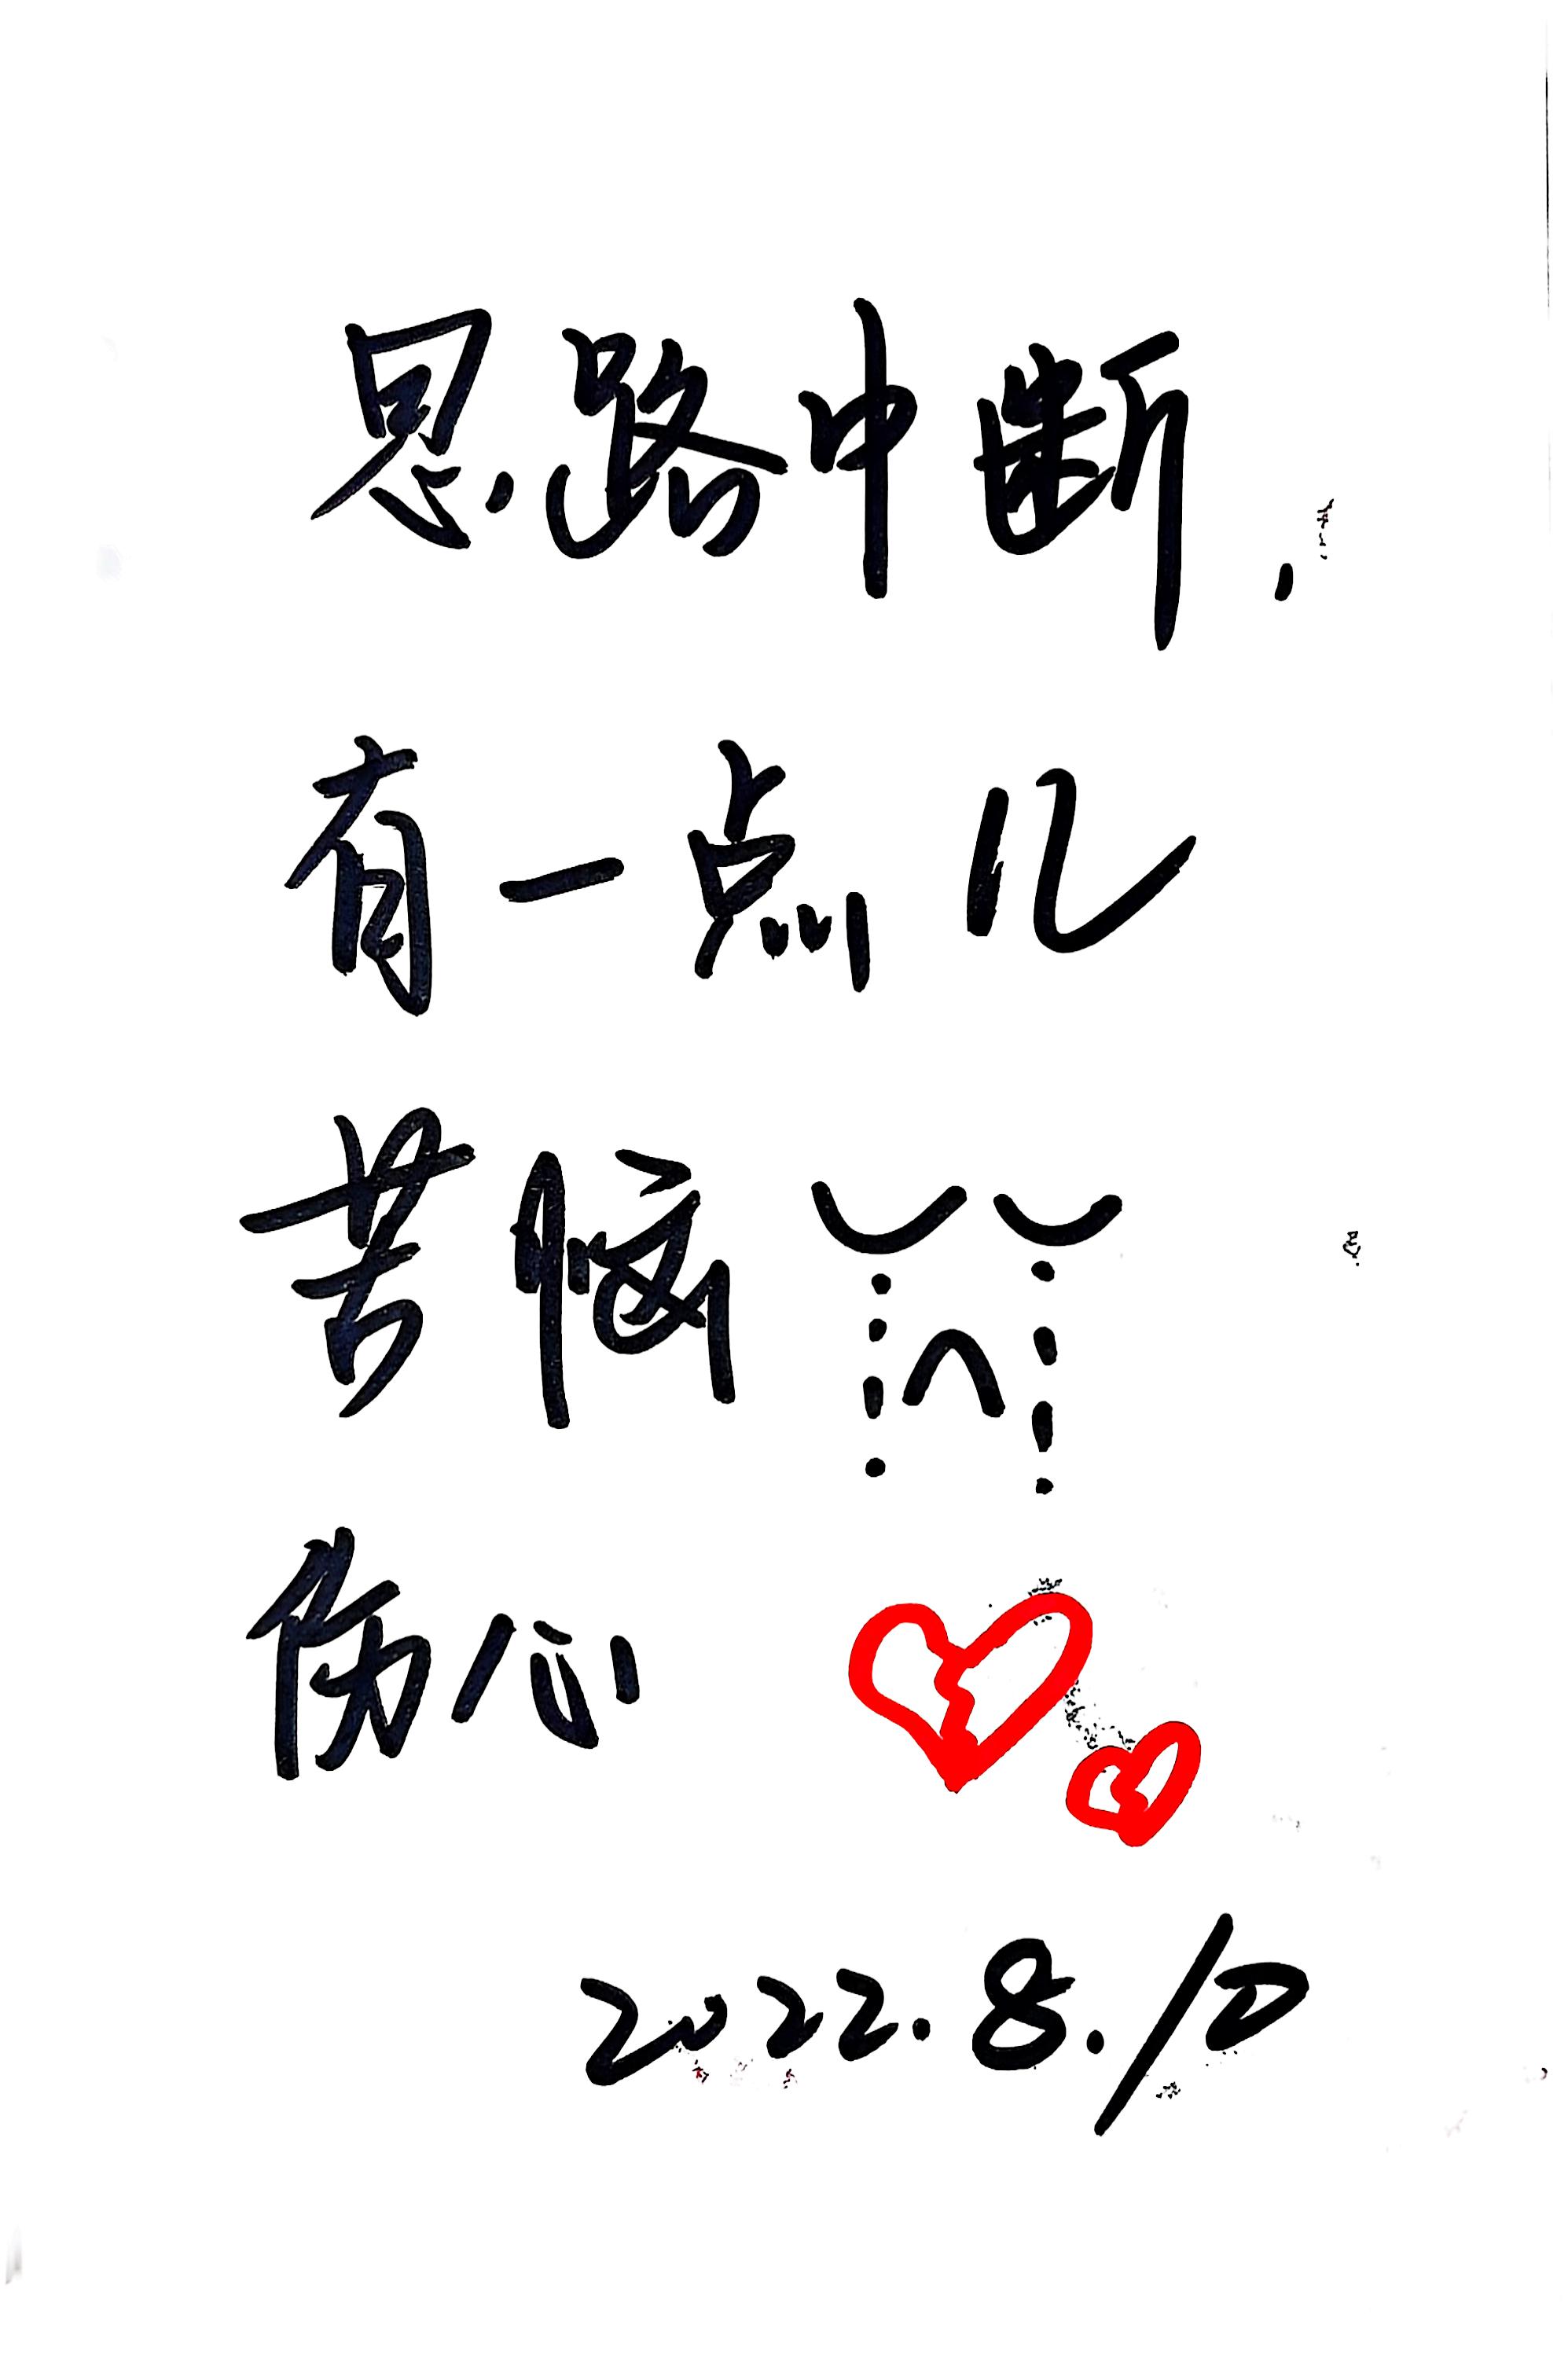 思路中断,
有一点儿
苦恼
伤心
2022.8.10